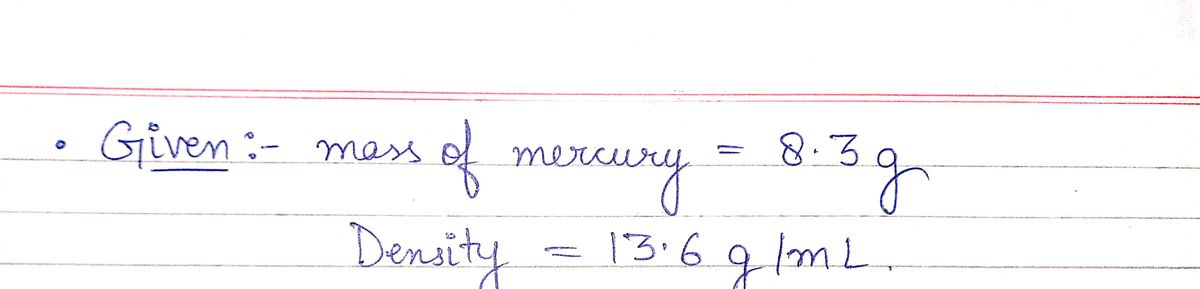 • Given :- mass of mercury = 8.3 g
Density = 13.6 g/mL.